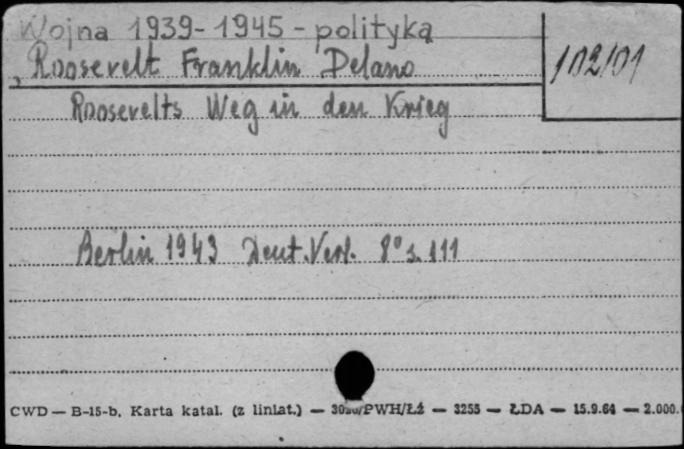 Wojna 1939-1945 - polityka
Roosevelt Franklin Delano
102101
Roosevelts Weg in den Krieg
Berlin 1943 Deut. Verl. 8° s. 111
CWD — B-15-b, Karta katal. (z liniat.) — PWH/ŁŹ — 3255 — ŁDA — 15.9.64 — 2.000.